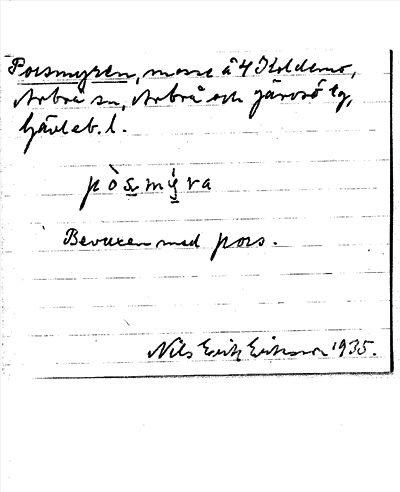 Porsmyren, mosse å 4 Koldemo,
Arbrå sn, Arbrå och Järvsö tg,
Gävleb. l.
pòs̲mý̲ra
Bevuxen med pors.
Nils Erik Eriksson 1935.